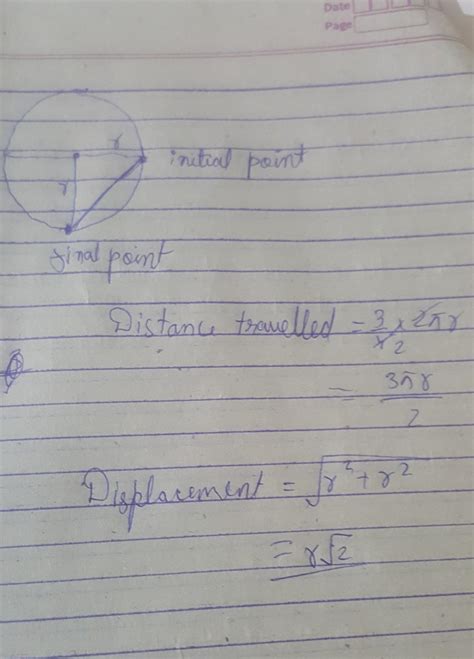 Date
Page
r
initial point
r
final point
Distance travelled = 3/4 × 2πr
2
= 3πr/2
Displacement = √r²+r²
= r√2